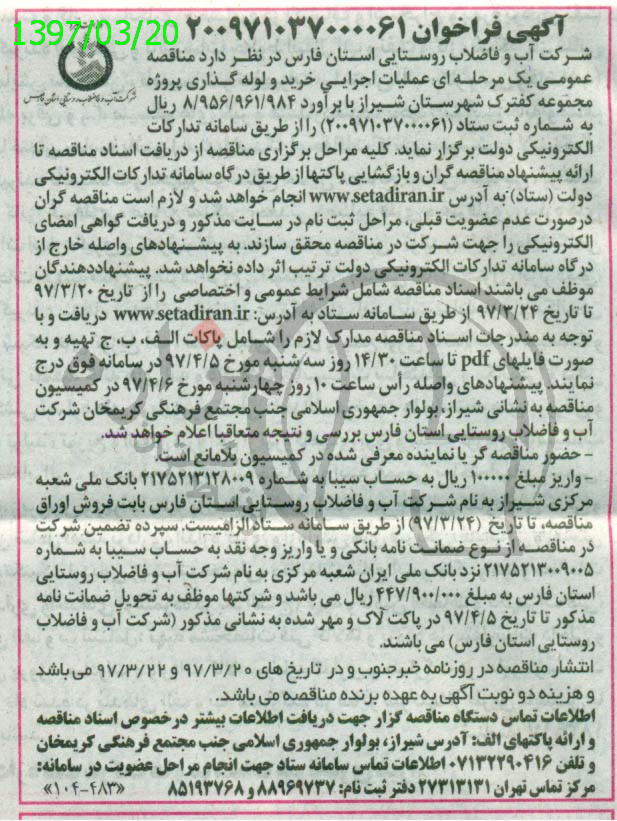 1397/03/20
آگهی فراخوان ۲۰۰۹۷۱۰۳۷۰۰۰۰۰۶۱
شرکت آب و فاضلاب روستایی استان فارس در نظر دارد مناقصه
عمومی یک مرحله ای عملیات اجرایی خرید و لوله گذاری پروژه
مجموعه کفترک شهرستان شیراز با برآورد ۸/۹۵۶/۹۶۱/۹۸۴ ریال
به شماره ثبت ستاد (۲۰۰۹۷۱۰۳۷۰۰۰۰۰۶۱) را از طریق سامانه تدارکات
الکترونیکی دولت برگزار نماید. کلیه مراحل برگزاری مناقصه از دریافت اسناد مناقصه تا
ارائه پیشنهاد مناقصه گران و بازگشایی پاکتها از طریق درگاه سامانه تدارکات الکترونیکی
دولت (ستاد) به آدرس www.setadiran.ir انجام خواهد شد و لازم است مناقصه گران
درصورت عدم عضویت قبلی، مراحل ثبت نام در سایت مذکور و دریافت گواهی امضای
الکترونیکی را جهت شرکت در مناقصه محقق سازند. به پیشنهادهای واصله خارج از
درگاه سامانه تدارکات الکترونیکی دولت ترتیب اثر داده نخواهد شد. پیشنهاددهندگان
موظف می باشند اسناد مناقصه شامل شرایط عمومی و اختصاصی را از تاریخ ۹۷/۳/۲۰
تا تاریخ ۹۷/۳/۲۴ از طریق سامانه ستاد به آدرس: www.setadiran.ir دریافت و با
توجه به مندرجات اسناد مناقصه مدارک لازم را شامل پاکات الف، ب، ج تهیه و به
صورت فایلهای pdf تا ساعت ۱۴/۳۰ روز سه شنبه مورخ ۹۷/۴/۵ در سامانه فوق درج
نمایند. پیشنهادهای واصله رأس ساعت ۱۰ روز چهارشنبه مورخ ۹۷/۴/۶ در کمیسیون
مناقصه به نشانی شیراز، بولوار جمهوری اسلامی جنب مجتمع فرهنگی کریمخان شرکت
آب و فاضلاب روستایی استان فارس بررسی و نتیجه متعاقبا اعلام خواهد شد.
- حضور مناقصه گر یا نماینده معرفی شده در کمیسیون بلامانع است.
- واریز مبلغ ۱۰۰۰۰۰ ریال به حساب سیبا به شماره ۲۱۷۵۲۱۳۱۲۸۰۰۹ بانک ملی شعبه
مرکزی شیراز به نام شرکت آب و فاضلاب روستایی استان فارس بابت فروش اوراق
مناقصه، تا تاریخ (۹۷/۳/۲۴) از طریق سامانه ستاد الزامیست. سپرده تضمین شرکت
در مناقصه از نوع ضمانت نامه بانکی و یا واریز وجه نقد به حساب سیبا به شماره
۲۱۷۵۲۱۳۰۰۹۰۰۵ نزد بانک ملی ایران شعبه مرکزی به نام شرکت آب و فاضلاب روستایی
استان فارس به مبلغ ۴۴۷/۹۰۰/۰۰۰ ریال می باشد و شرکتها موظف به تحویل ضمانت نامه
مذکور تا تاریخ ۹۷/۴/۵ در پاکت لاک و مهر شده به نشانی مذکور (شرکت آب و فاضلاب
روستایی استان فارس) می باشند.
انتشار مناقصه در روزنامه خبرجنوب و در تاریخ های ۹۷/۳/۲۰ و ۹۷/۳/۲۲ می باشد
و هزینه دو نوبت آگهی به عهده برنده مناقصه می باشد.
اطلاعات تماس دستگاه مناقصه گزار جهت دریافت اطلاعات بیشتر درخصوص اسناد مناقصه
و ارائه پاکتهای الف: آدرس شیراز، بولوار جمهوری اسلامی جنب مجتمع فرهنگی کریمخان
و تلفن ۰۷۱۳۲۲۹۰۴۱۶ اطلاعات تماس سامانه ستاد جهت انجام مراحل عضویت در سامانه:
مرکز تماس تهران ۲۷۳۱۳۱۳۱ دفتر ثبت نام: ۸۸۹۶۹۷۳۷ و ۸۵۱۹۳۷۶۸ «۱۰۴-۴۸۳»